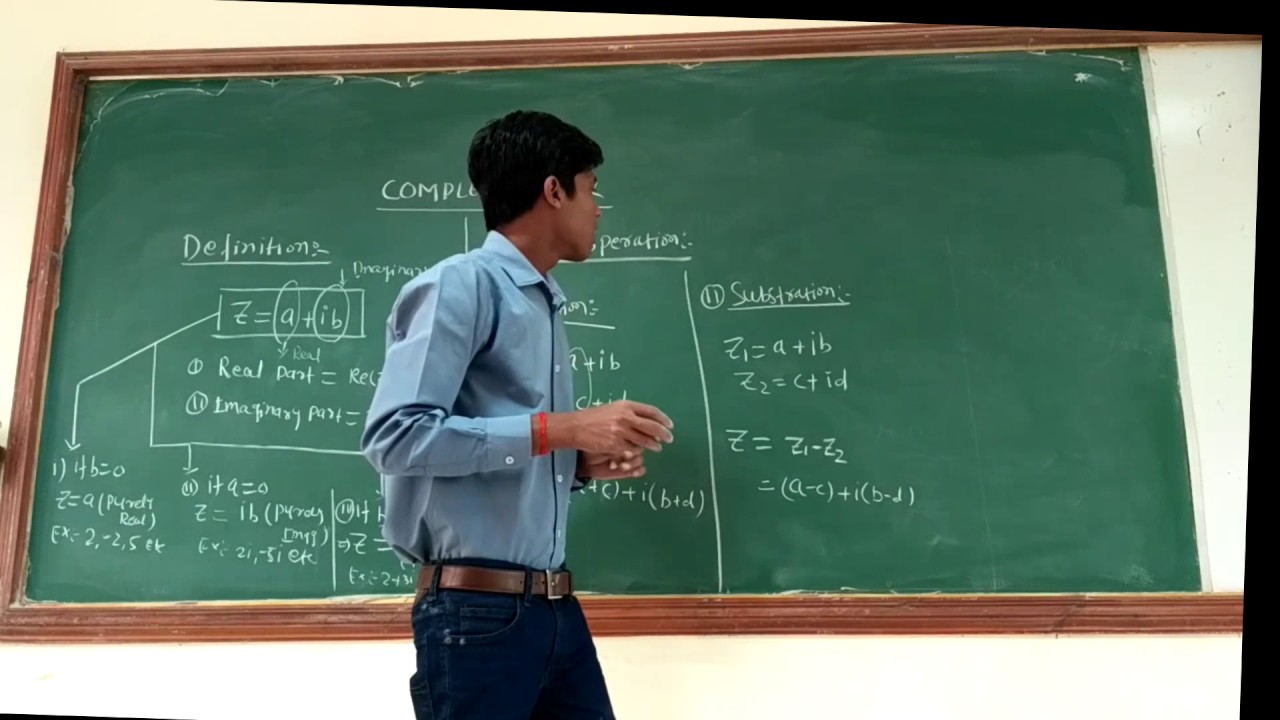 COMPLE
Definition:-
Imaginary
Z = a + ib
Real
(i) Real part = Re(
(ii) Imaginary part =
i) if b=0
Z=a (purely
Real)
Ex:- 2,-2,5 etc
(ii) if a=0
Z = ib (purely
Img)
Ex:- 2i,-5i etc
Z =
Ex:- 2+3i
peration:-
on:-
a+ib
c+id
+c)+i(b+d)
(ii) Substration:-
Z1 = a+ib
Z2 = c+id
Z = Z1-Z2
= (a-c)+i(b-d)